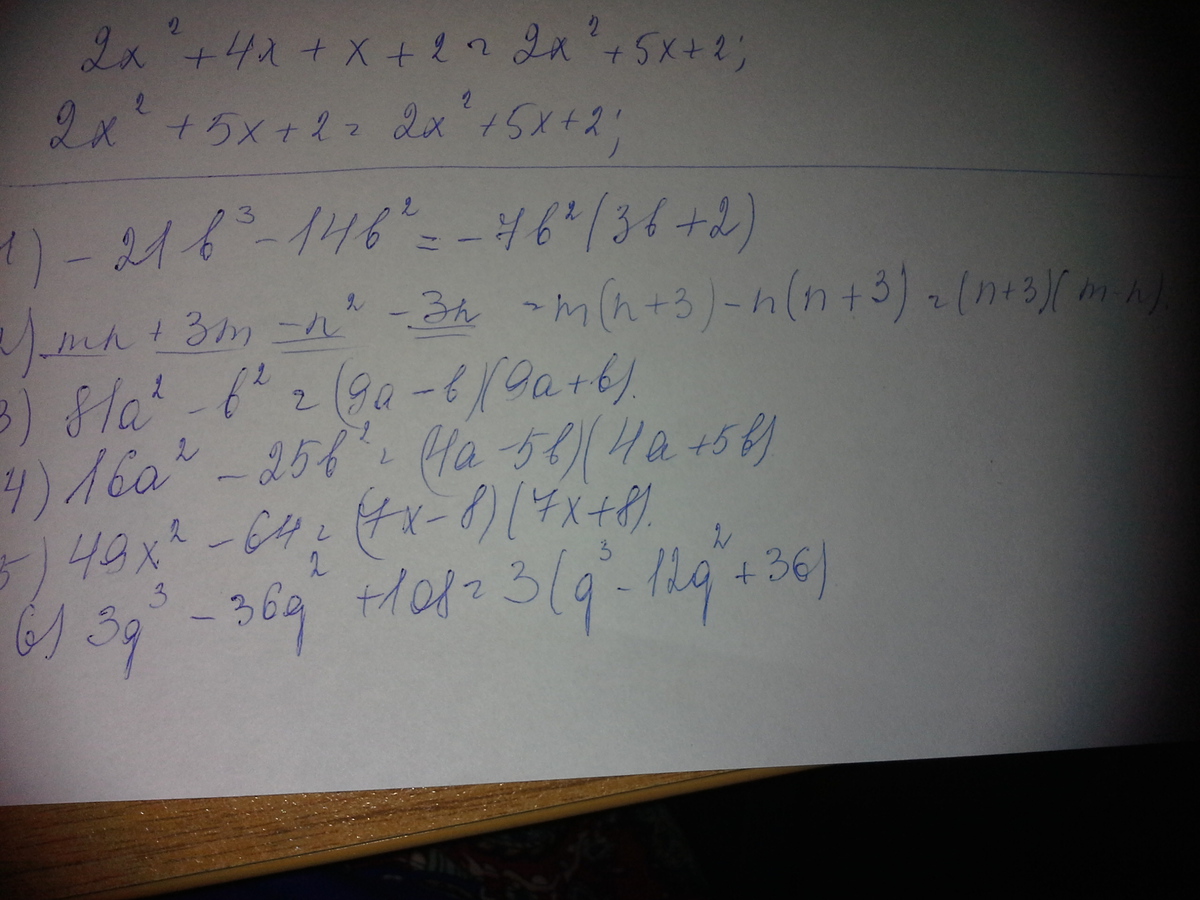 2x² + 4x + x + 2 = 2x² + 5x + 2;
2x² + 5x + 2 = 2x² + 5x + 2;
1) - 21b³ - 14b² = - 7b² (3b + 2)
2) mn + 3m - n² - 3n = m(n + 3) - n(n + 3) = (n+3)(m-n).
3) 81a² - b² = (9a - b)(9a + b).
4) 16a² - 25b² = (4a - 5b)(4a + 5b)
5) 49x² - 64 = (7x - 8)(7x + 8).
6) 3g³ - 36g² + 108 = 3(g³ - 12g² + 36)